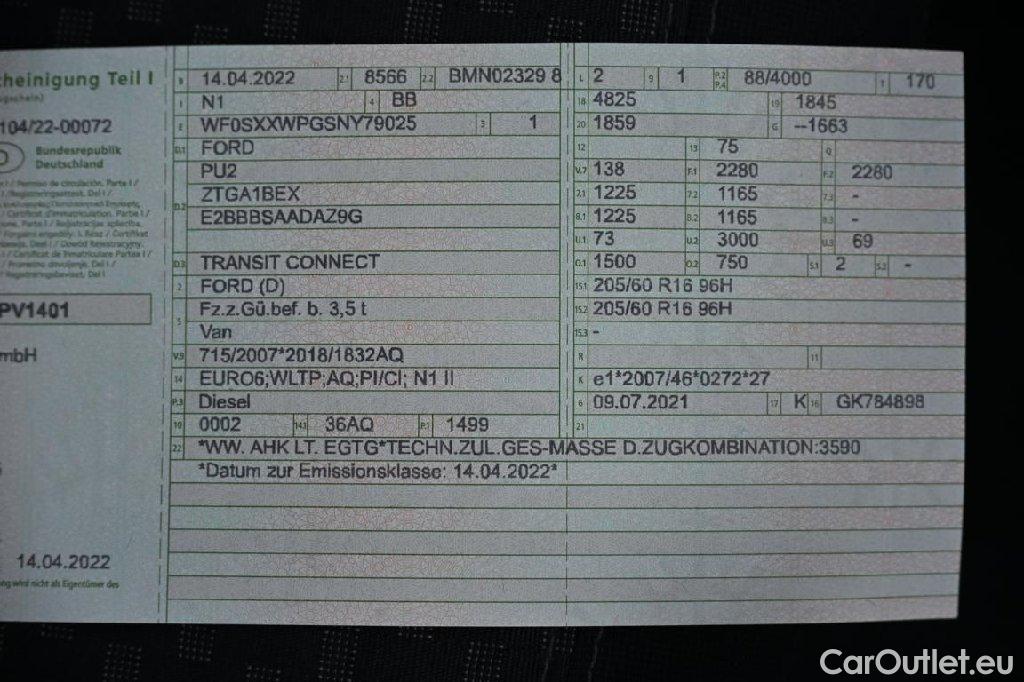 cheinigung Teil I
B 14.04.2022 2.1 8566 2.2 BMN02329 8 L 2 9 1 P.2 P.4 88/4000 T 170
J N1 4 BB 18 4825 19 1845
104/22-00072
E WF0SXXWPGSNY79025 3 1 20 1859 G --1663
D
Bundesrepublik
Deutschland
D.1 FORD 12 13 75 Q
PU2 V.7 138 F.1 2280 F.2 2280
D.2 ZTGA1BEX 7.1 1225 7.2 1165 7.3 -
E2BBBSAADAZ9G 8.1 1225 8.2 1165 8.3 -
U.1 73 U.2 3000 U.3 69
D.3 TRANSIT CONNECT O.1 1500 O.2 750 S.1 2 S.2 -
2 FORD (D) 15.1 205/60 R16 96H
PV1401
5 Fz.z.Gü.bef. b. 3,5 t 15.2 205/60 R16 96H
Van 15.3 -
mbH
V.9 715/2007*2018/1832AQ R 11
14 EURO6;WLTP;AQ;PI/CI; N1 II K e1*2007/46*0272*27
P.3 Diesel 6 09.07.2021 17 K 16 GK784898
10 0002 14.1 36AQ P.1 1499 21
22 *WW. AHK LT. EGTG*TECHN.ZUL.GES-MASSE D.ZUGKOMBINATION:3590
*Datum zur Emissionsklasse: 14.04.2022*
14.04.2022
ng wird nicht als Eigentümer des
CarOutlet.eu